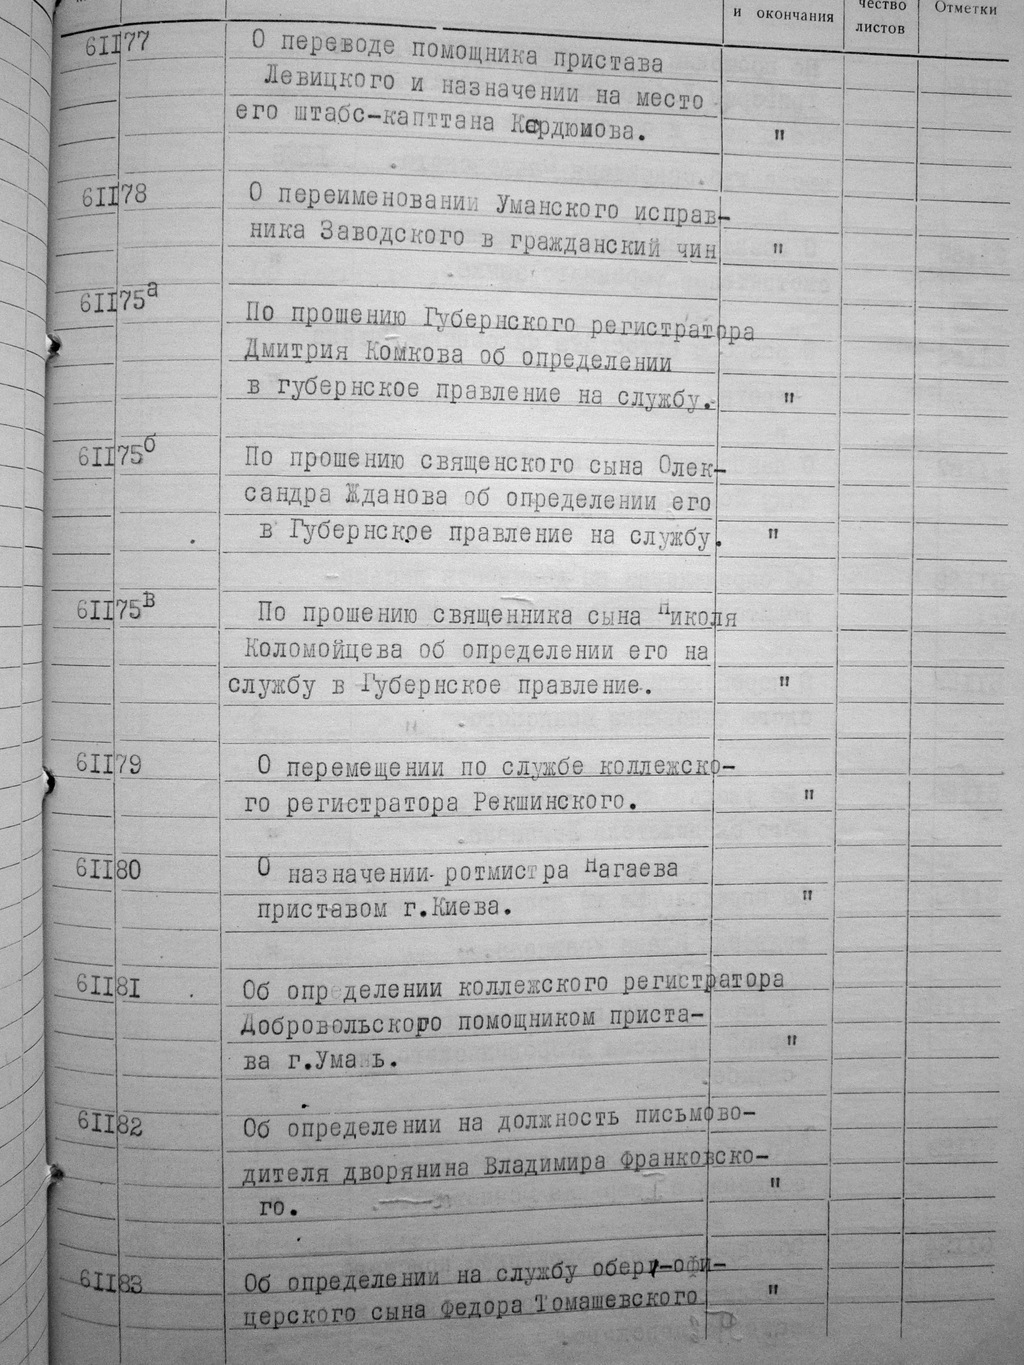 и окончания
чество
листов
Отметки
61177 О переводе помощника пристава
Левицкого и назначении на место
его штабс-капттана Кердюмова. "
61178 О переименовании Уманского исправ-
ника Заводского в гражданский чин "
61175а
По прошению Губернского регистратора
Дмитрия Комкова об определении
в губернское правление на службу. "
61175б По прошению священского сына Олек-
сандра Жданова об определении его
в Губернское правление на службу. "
61175в По прошению священника сына Николя
Коломойцева об определении его на
службу в Губернское правление. "
61179 О перемещении по службе коллежско-
го регистратора Рекшинского. "
61180 О назначении ротмистра Нагаева
приставом г.Киева. "
61181 Об определении коллежского регистратора
Добровольского помощником приста-
ва г.Умань. "
61182 Об определении на должность письмово-
дителя дворянина Владимира Франковско-
го. "
61183 Об определении на службу обер-офи-
церского сына Федора Томашевского "